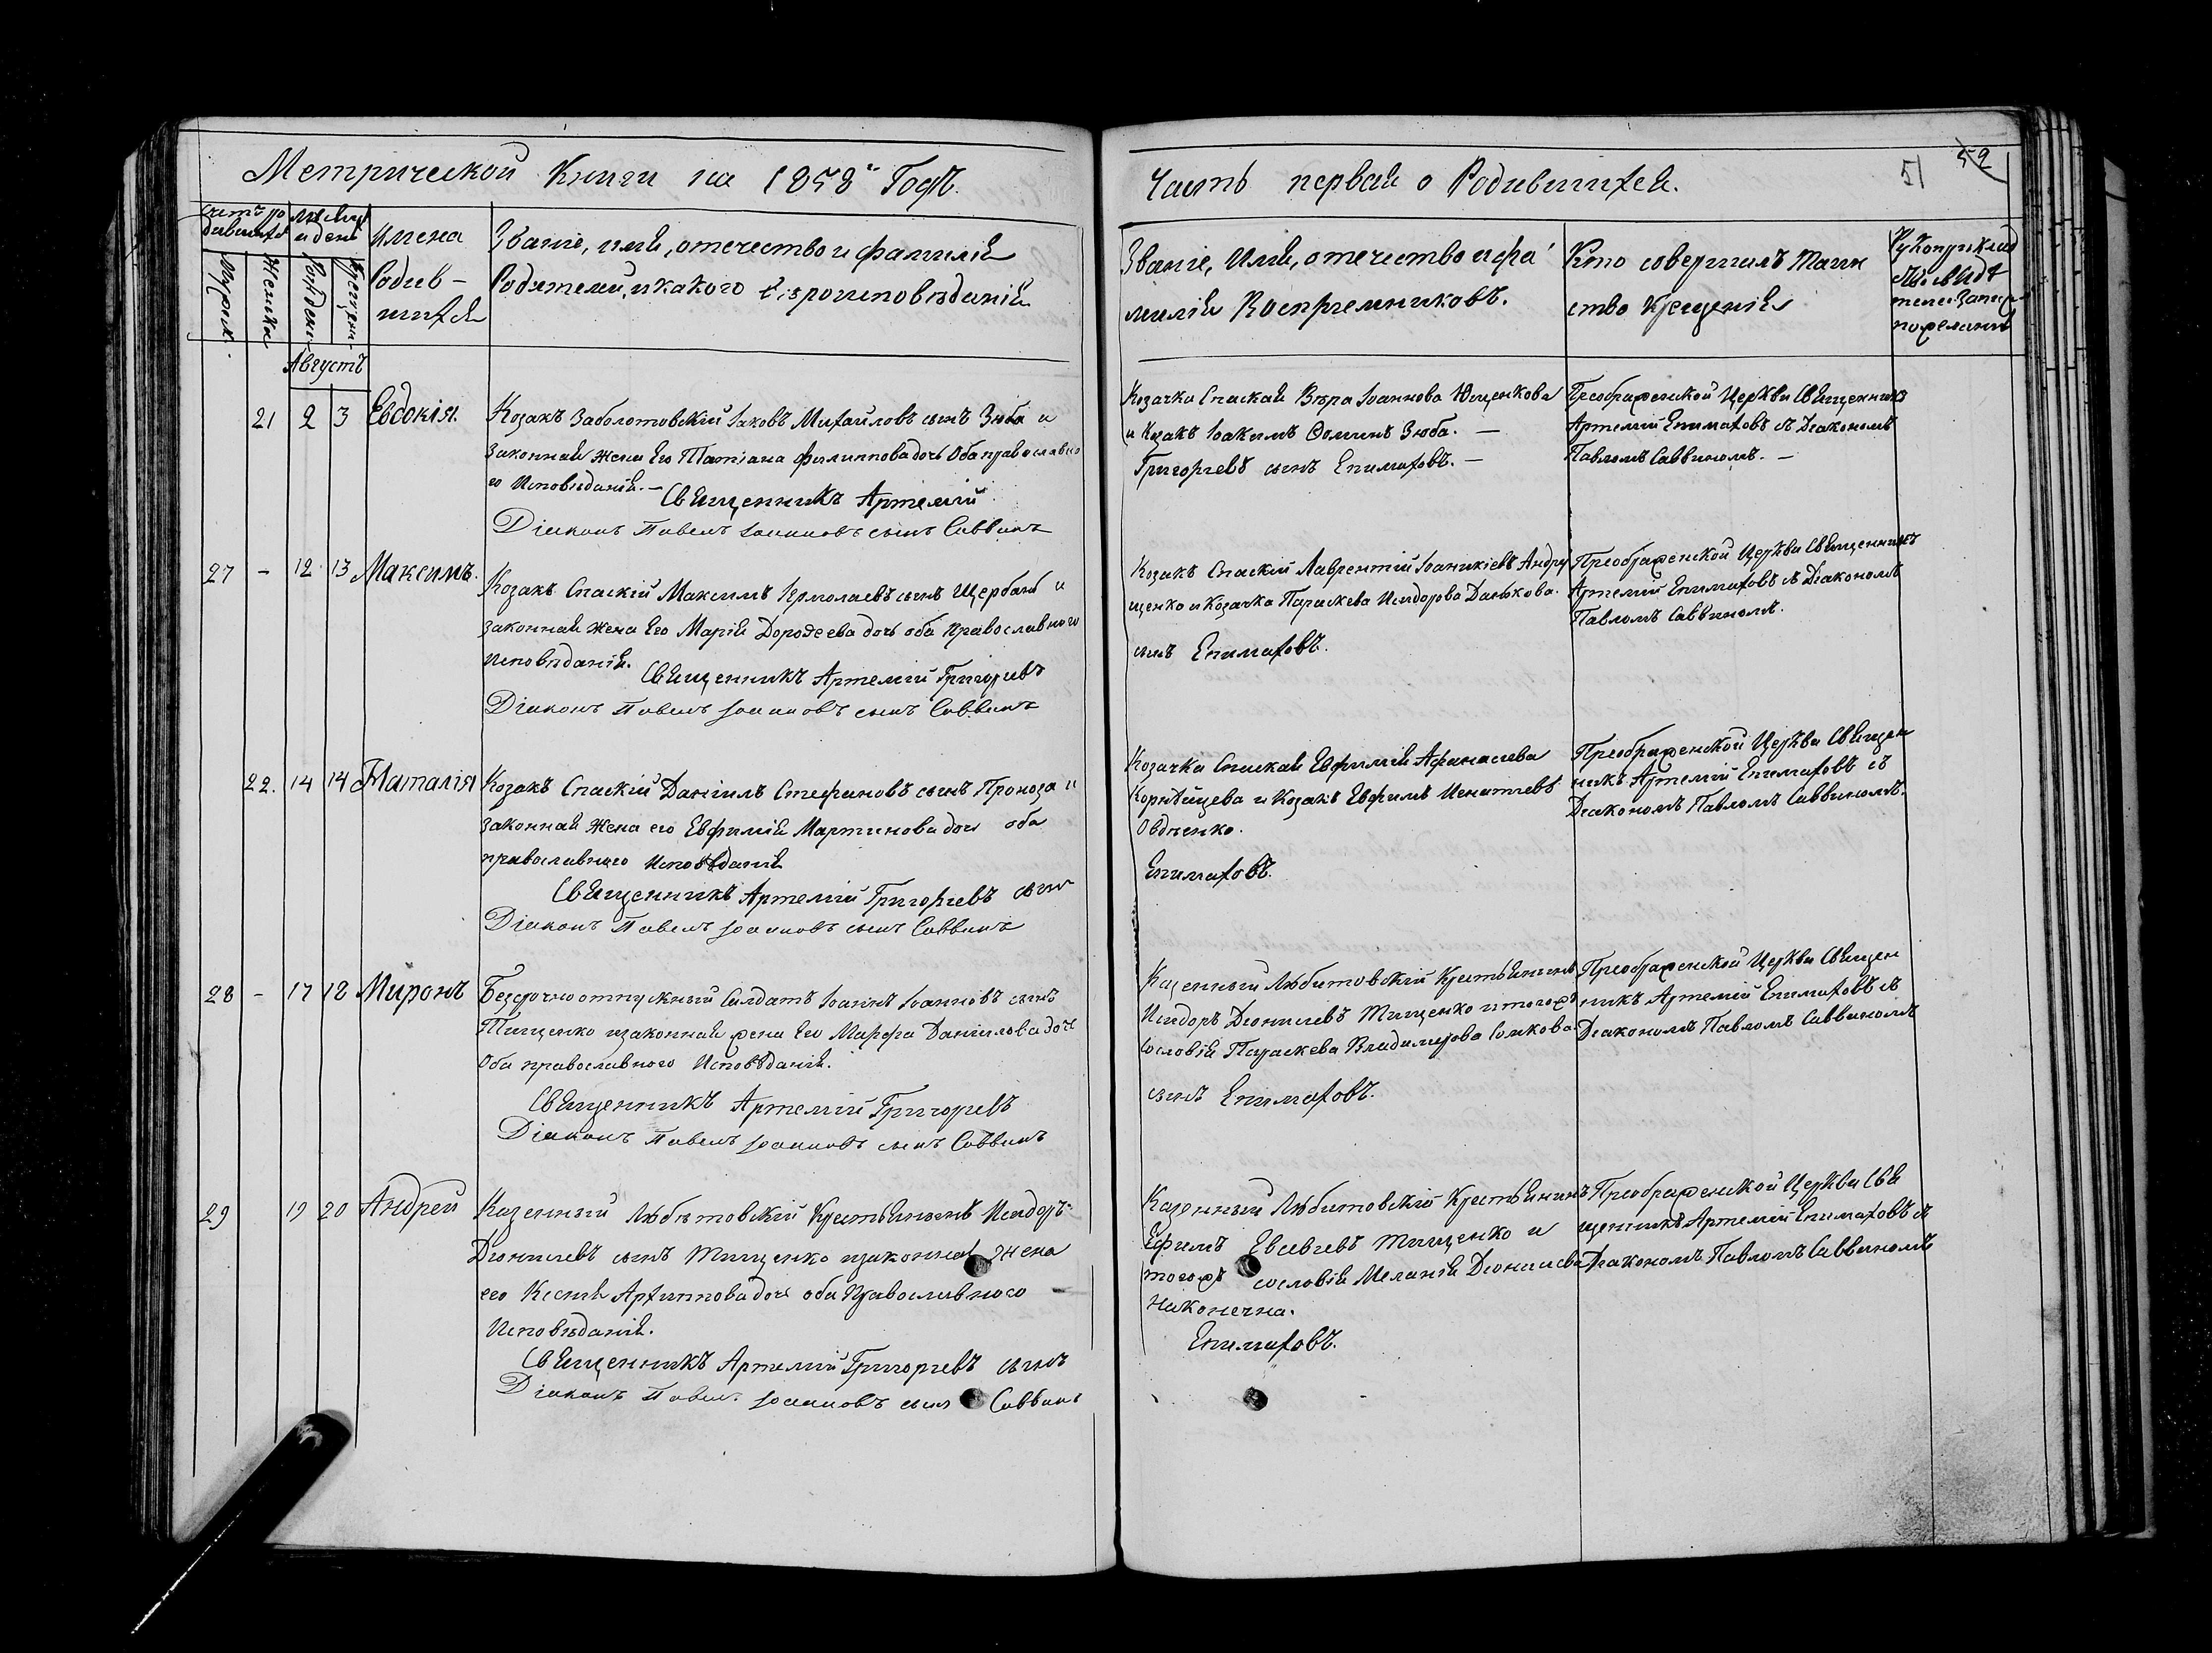 Метрической Книги на 1858й Годъ.
Имена
Родив-
шихся
Званіе, имя, отечество и фамилія
Родителей, и какого вѣроисповѣданія
Августъ
21 2 3 Евдокія.
Козакъ Заболотовскій Іаковъ Михайловъ сынъ Зюба и
Законная жена Его Татіана Филиппова дочь Оба православно
го Исповѣданія.-
Священникъ Артемій
Діаконъ Павелъ Іоанновъ сынъ Саввинъ
27 - 12 13 Максимъ.
Козакъ Спаскій Максимъ Ермолаевъ сынъ Щербакъ и
законная жена Его Марія Дорофеева дочь оба Православного
исповѣданія.
Священникъ Артемій Григорьевъ
Діаконъ Павелъ Іоанновъ сынъ Саввинъ
22. 14 14 Наталія
Козакъ Спаскій Даніилъ Стефановъ сынъ Проноза и
законная жена его Евфимія Мартинова дочь оба
православного исповѣданія
Священникъ Артемій Григорьевъ сынъ
Діаконъ Павелъ Іоанновъ сынъ Саввинъ
28 - 17 18 Миронъ
Безсрочноотпускный Солдатъ Іоаннъ Іоанновъ сынъ
Тищенко и законная жена Его Марфа Даніилова дочь
Оба православного Исповѣданія.
Священникъ Артемій Григорьевъ
Діаконъ Павелъ Іоанновъ сынъ Саввинъ
29 19 20 Андрей
Казенный Любитовскій Крестьянинъ Исидоръ
Діонисіевъ сынъ Тищенко и законная Жена
его Ксенія Архиппова дочь оба Православного
Исповѣданія.
Священникъ Артемій Григорьевъ сынъ
Діаконъ Павелъ Іоанновъ сынъ Саввинъ
Часть первая о Родившихся.
51 52
Званіе, Имя, отечество и фа
милія Воспріемниковъ.
Кто совершилъ Таин
ство Крещенія
Козачка Спаская Вѣра Іоаннова Ющенкова
и Козакъ Іоакимъ Фоминъ Зюба. -
Григорьевъ сынъ Епимаховъ. -
Преображенской Церкви Священникъ
Артемій Епимаховъ съ Діакономъ
Павломъ Саввиномъ. -
Козакъ Спаскій Лаврентій Іоаникіевъ Андру
щенко и Козачка Параскева Исидорова Данькова.
сынъ Епимаховъ.
Преображенской Церкви Священникъ
Артемій Епимаховъ съ Діакономъ
Павломъ Саввиномъ.
Козачка Спаская Евфимія Афанасіева
Корнѣйцева и Козакъ Евфимъ Игнатіевъ
Овдѣенко.
Епимаховъ.
Преображенской Церкви Священ
никъ Артемій Епимаховъ съ
Діакономъ Павломъ Саввиномъ.
Казенный Любитовскій Крестьянинъ
Исидоръ Діонисіевъ Тищенко и тогожъ
сословія Параскева Владимірова Сошкова
сынъ Епимаховъ.
Преображенской Церкви Священ
никъ Артемій Епимаховъ съ
Діакономъ Павломъ Саввиномъ
Казенный Любитовскій Крестьянинъ
Ефимъ Евсевіевъ Тищенко и
тогожъ сословія Меланія Діонисіева
Наконечна.
Епимаховъ.
Преображенской Церкви Свя
щенникъ Артемій Епимаховъ съ
Діакономъ Павломъ Саввиномъ